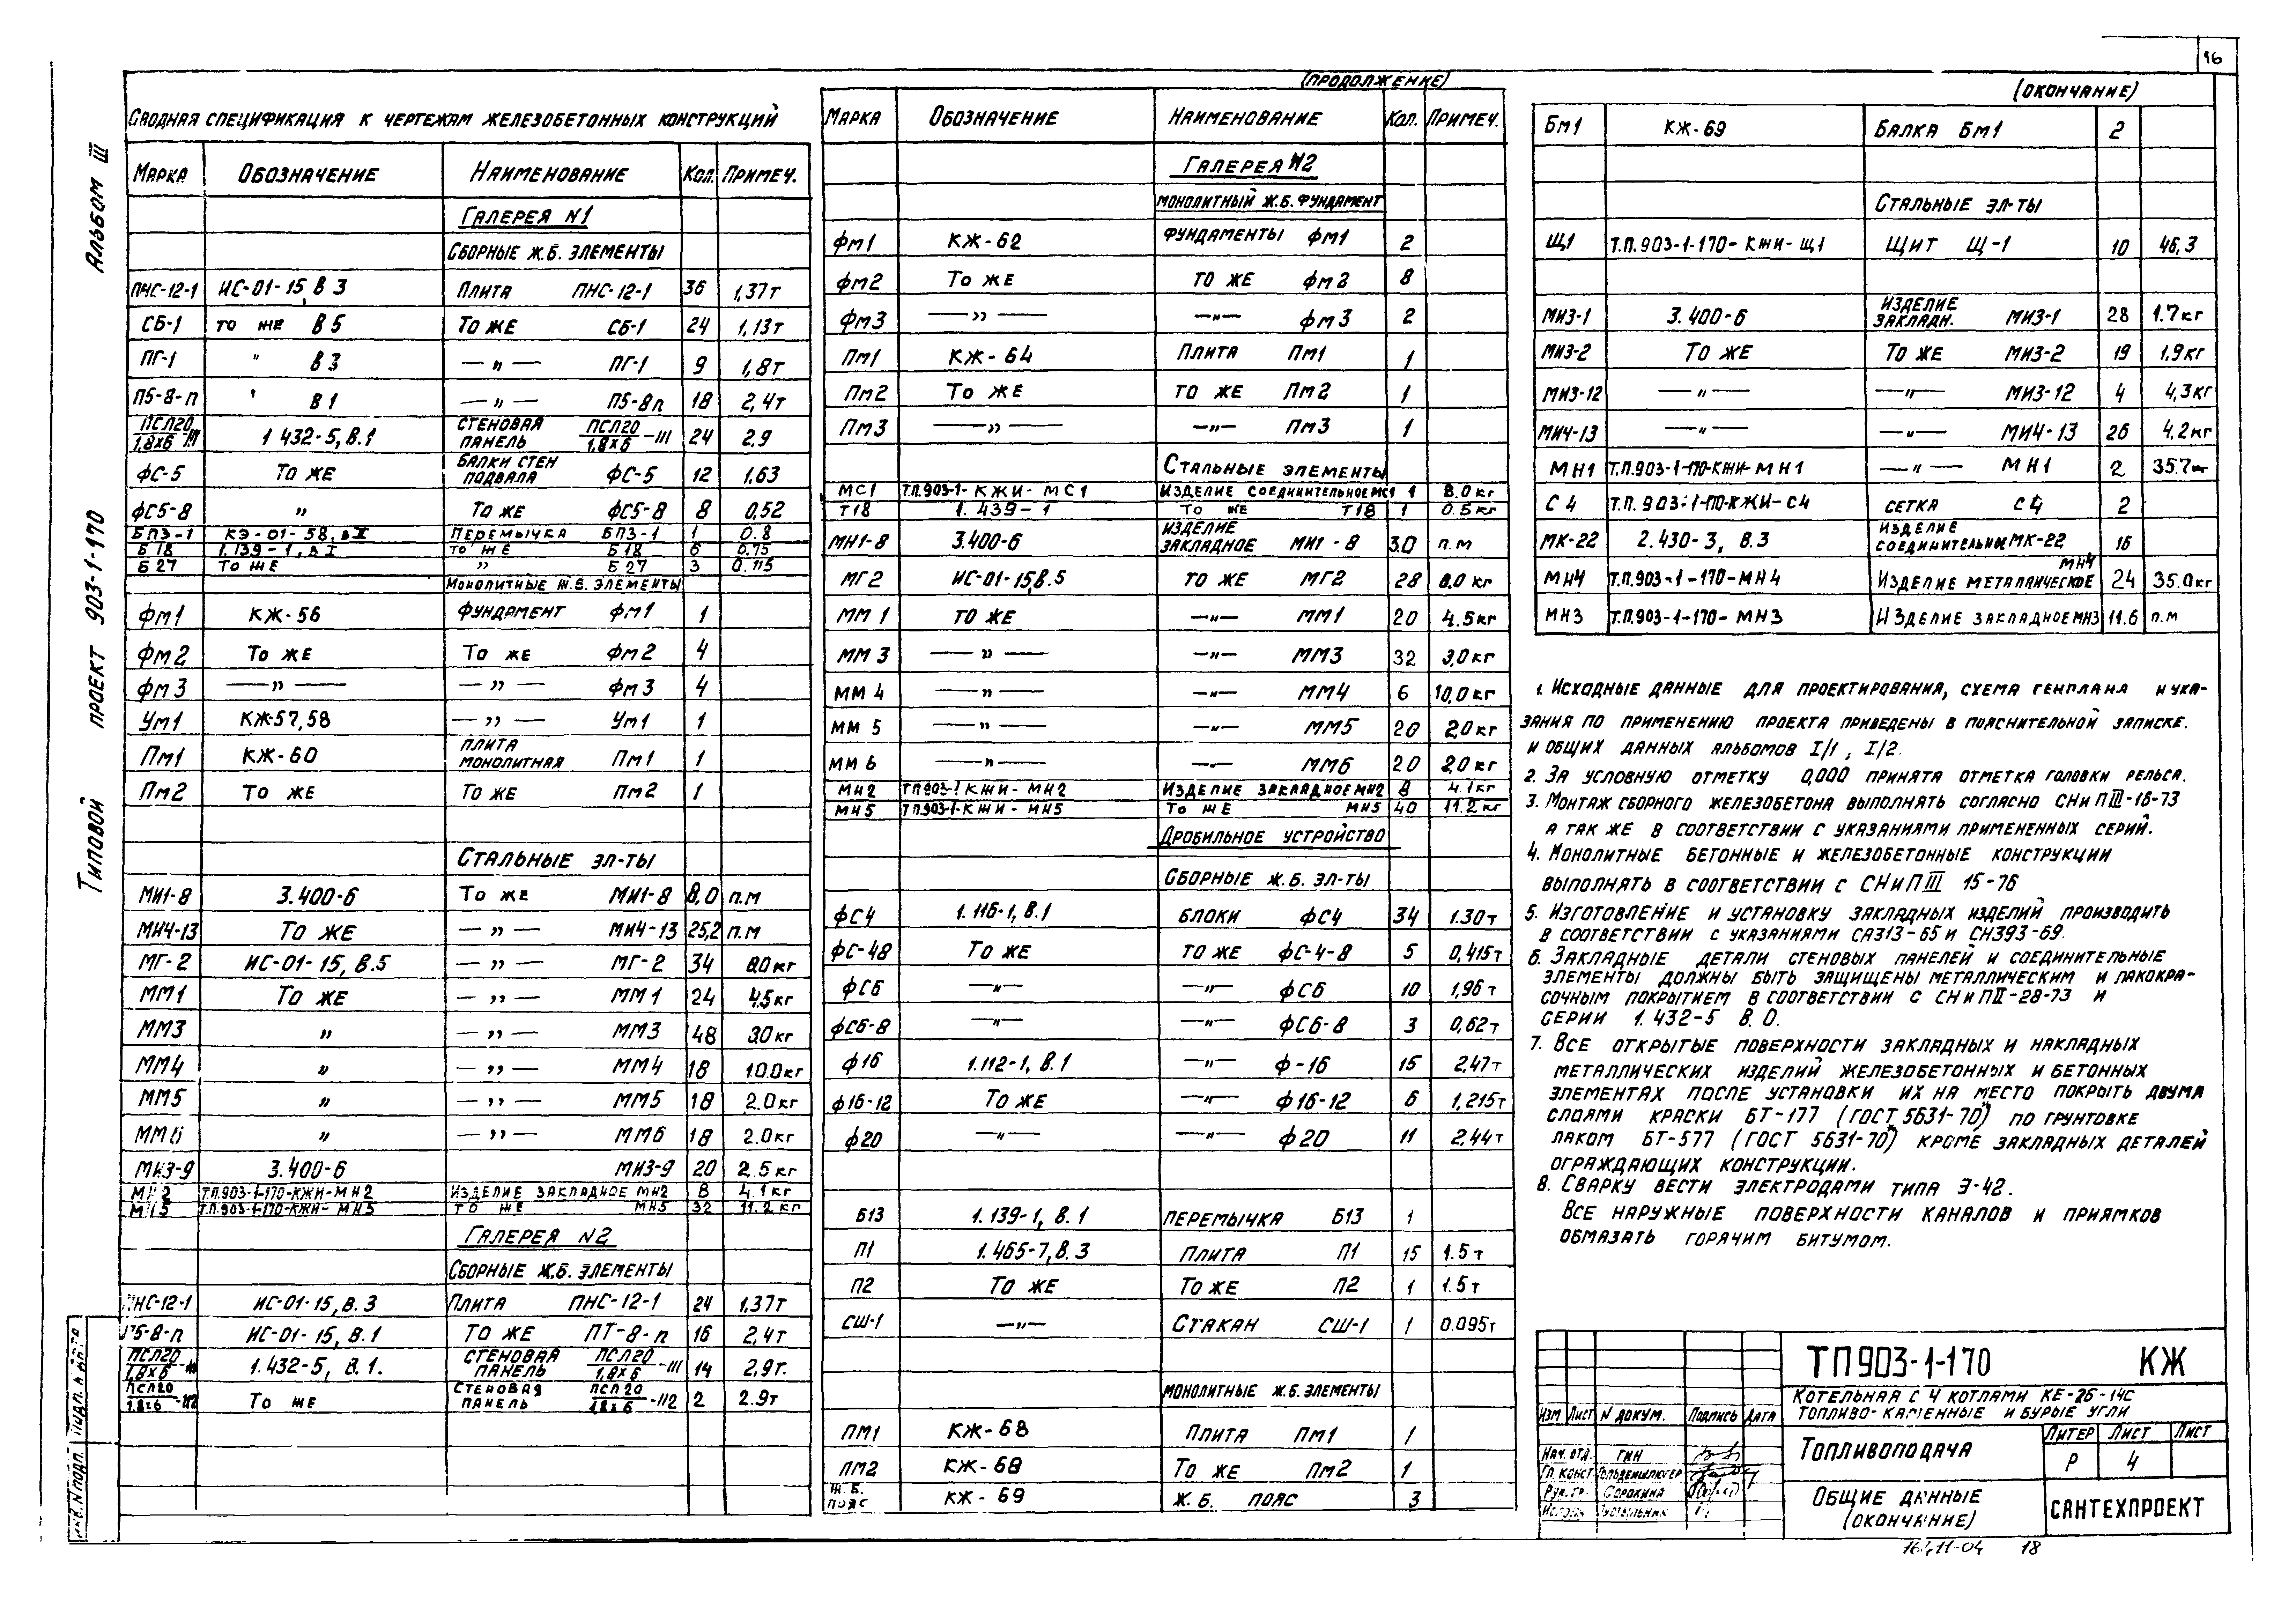 16
Альбом III
Типовой проект 903-1-170
Сводная спецификация к чертежам железобетонных конструкций
Марка Обозначение Наименование Кол. Примеч.
Галерея N1
Сборные ж.б. элементы
ПНС-12-1 ИС-01-15, В 3 Плита ПНС-12-1 36 1,37т
СБ-1 то же В 5 То же СБ-1 24 1,13т
ПГ-1 " В 3 —„— ПГ-1 9 1,8т
П5-8-п " В 1 —„— П5-8п 18 2,4т
ПСЛ20/1,8х6-III 1 432-5, В.1 Стеновая панель ПСЛ20/1,8х6-III 24 2.9
ФС-5 То же Балки стен подвала ФС-5 12 1,63
ФС5-8 „ То же ФС5-8 8 0,52
БПЗ-1 КЭ-01-58, в II Перемычка БПЗ-1 1 0.8
Б 18 1.139-1, в I то же Б 18 6 0.75
Б 27 То же „ Б 27 3 0.115
Монолитные ж.б. элементы
Фм1 КЖ-56 Фундамент Фм1 1
Фм2 То же То же Фм2 4
Фм3 —„— —„— Фм3 4
Ум1 КЖ-57,58 —„— Ум1 1
Пм1 КЖ-60 Плита монолитная Пм1 1
Пм2 То же То же Пм2 1
Стальные эл-ты
МИ1-8 3.400-6 То же МИ1-8 8,0 п.м
МИ4-13 То же —„— МИ4-13 25,2 п.м
МГ-2 ИС-01-15, В.5 —„— МГ-2 34 8.0кг
ММ1 То же —„— ММ1 24 4,5кг
ММ3 „ —„— ММ3 48 3.0кг
ММ4 „ —„— ММ4 18 10.0кг
ММ5 „ —„— ММ5 18 2.0кг
ММ6 „ —„— ММ6 18 2.0кг
МИЗ-9 3.400-6 МИЗ-9 20 2.5кг
МН2 Т.П.903-1-170-КЖИ-МН2 Изделие закладное МН2 8 4.1кг
МН5 Т.П.903-1-170-КЖИ-МН5 То же МН5 32 11.2кг
Галерея N2
Сборные ж.б. элементы
ПНС-12-1 ИС-01-15, В.3 Плита ПНС-12-1 24 1,37т
П5-8-п ИС-01-15, В.1 То же ПТ-8-п 16 2,4т
ПСЛ20/1,8х6-III 1.432-5, В.1. Стеновая панель ПСЛ20/1,8х6-III 14 2,9т.
ПСЛ20/1.8х6-112 То же Стеновая панель ПСЛ20/1.8х6-112 2 2.9т
(продолжение)
Марка Обозначение Наименование Кол. Примеч.
Галерея N2
Монолитный ж.б. фундамент
Фм1 КЖ-62 Фундаменты Фм1 2
Фм2 То же То же Фм2 8
Фм3 —„— —„— Фм3 2
Пм1 КЖ-64 Плита Пм1 1
Пм2 То же То же Пм2 1
Пм3 —„— —„— Пм3 1
Стальные элементы
МС1 Т.П.903-1-КЖИ-МС1 Изделие соединительное МС1 1 8.0кг
Т18 1.439-1 То же Т18 1 0.5кг
МН1-8 3.400-6 Изделие закладное МИ1-8 30 п.м
МГ2 ИС-01-15,В.5 То же МГ2 28 8.0 кг
ММ1 То же —„— ММ1 20 4.5кг
ММ3 —„— —„— ММ3 32 3,0кг
ММ4 —„— —„— ММ4 6 10,0кг
ММ5 —„— —„— ММ5 20 2,0кг
ММ6 —„— —„— ММ6 20 2,0кг
МН2 ТП.903-1 КЖИ-МН2 Изделие закладное МН2 8 4.1кг
МН5 ТП.903-1-КЖИ-МН5 То же МН5 40 11.2кг
Дробильное устройство
Сборные ж.б. эл-ты
ФС4 1.116-1, В.1 Блоки ФС4 34 1.30т
ФС-48 То же То же ФС-4-8 5 0,415т
ФС6 —„— —„— ФС6 10 1,96т
ФС6-8 —„— —„— ФС6-8 3 0,62т
Ф16 1.112-1, В.1 —„— Ф-16 15 2,47т
Ф16-12 То же —„— Ф16-12 6 1,215т
Ф20 —„— —„— Ф20 11 2,44т
Б13 1.139-1, В.1 Перемычка Б13 1
П1 1.465-7, В.3 Плита П1 15 1.5т
П2 То же То же П2 1 1.5т
СШ-1 —„— Стакан СШ-1 1 0.095т
Монолитные ж.б. элементы
Пм1 КЖ-68 Плита Пм1 1
Пм2 КЖ-68 То же Пм2 1
Ж.б. пояс КЖ-69 Ж.б. пояс 3
(окончание)
Бм1 КЖ-69 Балка Бм1 2
Стальные эл-ты
Щ1 Т.П.903-1-170-КЖИ-Щ1 Щит Щ-1 10 46,3
МИЗ-1 3.400-6 Изделие закладн. МИЗ-1 28 1.7кг
МИЗ-2 То же То же МИЗ-2 19 1,9кг
МИЗ-12 —„— —„— МИЗ-12 4 4,3кг
МИ4-13 —„— —„— МИ4-13 26 4,2кг
МН1 Т.П.903-1-170-КЖИ-МН1 —„— МН1 2 35.7кг
С4 Т.П.903-1-170-КЖИ-С4 Сетка С4 2
МК-22 2.430-3, В.3 Изделие соединительное МК-22 16
МН4 Т.П.903-1-170-МН4 Изделие металлическое МН4 24 35.0кг
МН3 Т.П.903-1-170-МН3 Изделие закладное МН3 11.6 п.м
1. Исходные данные для проектирования, схема генплана и ука-
зания по применению проекта приведены в пояснительной записке.
и общих данных альбомов I/1, I/2.
2. За условную отметку 0,000 принята отметка головки рельса.
3. Монтаж сборного железобетона выполнять согласно СНиП III-16-73
а так же в соответствии с указаниями примененных серий.
4. Монолитные бетонные и железобетонные конструкции
выполнять в соответствии с СНиП III 15-76
5. Изготовление и установку закладных изделий производить
в соответствии с указаниями СА313-65 и СН393-69.
6. Закладные детали стеновых панелей и соединительные
элементы должны быть защищены металлическим и лакокра-
сочным покрытием в соответствии с СНиП II-28-73 и
серии 1.432-5 В.0.
7. Все открытые поверхности закладных и накладных
металлических изделий железобетонных и бетонных
элементах после установки их на место покрыть двумя
слоями краски БТ-177 (ГОСТ 5631-70*) по грунтовке
лаком БТ-577 (ГОСТ 5631-70*) кроме закладных деталей
ограждающих конструкции.
8. Сварку вести электродами типа Э-42.
Все наружные поверхности каналов и приямков
обмазать горячим битумом.
ТП903-1-170 КЖ
Котельная с 4 котлами КЕ-25-14С
Топливо-каменные и бурые угли
Изм Лист N докум. Подпись Дата
Топливоподача
Литер Лист Лист
Р 4
Нач. отд. Гин
Гл. конст Гольденшлюгер
Рук. гр. Сорокина
Общие данные
(окончание)
Сантехпроект
Инв. N подл. Подп. и дата
18